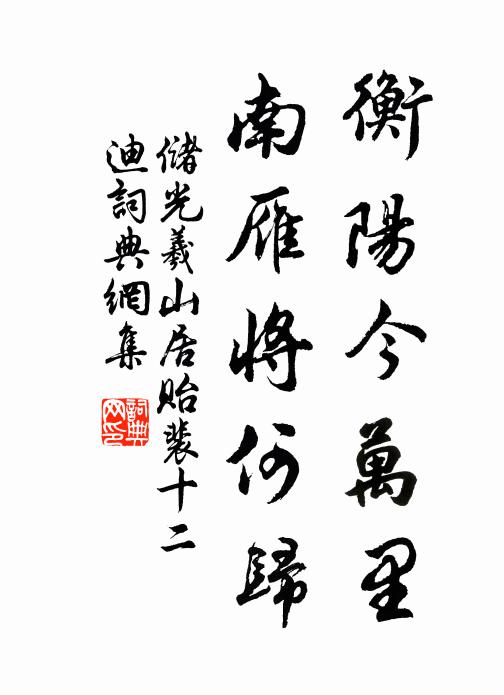 衡陽今萬里
南雁將何歸
儲光羲山居貽裴十二
迪詞典網集
詞典
网印